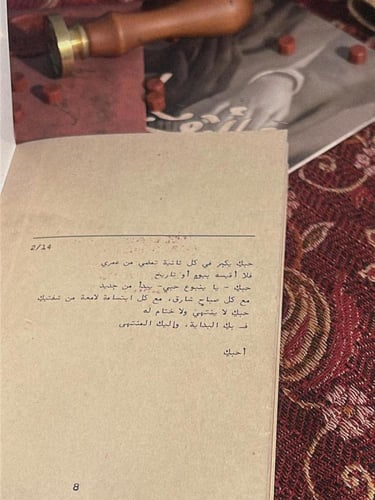 2/14
حبك يكبر في كل ثانية تمضي من عمري
فلا أقيسه بيوم أو تاريخ
حبك - يا ينبوع حبي - يبدأ من جديد
مع كل صباح شارق، مع كل ابتسامة لامعة من شفتيك
حبك لا ينتهي ولا ختام له
فـ بك البداية، وإليك المنتهى
أحبك
8